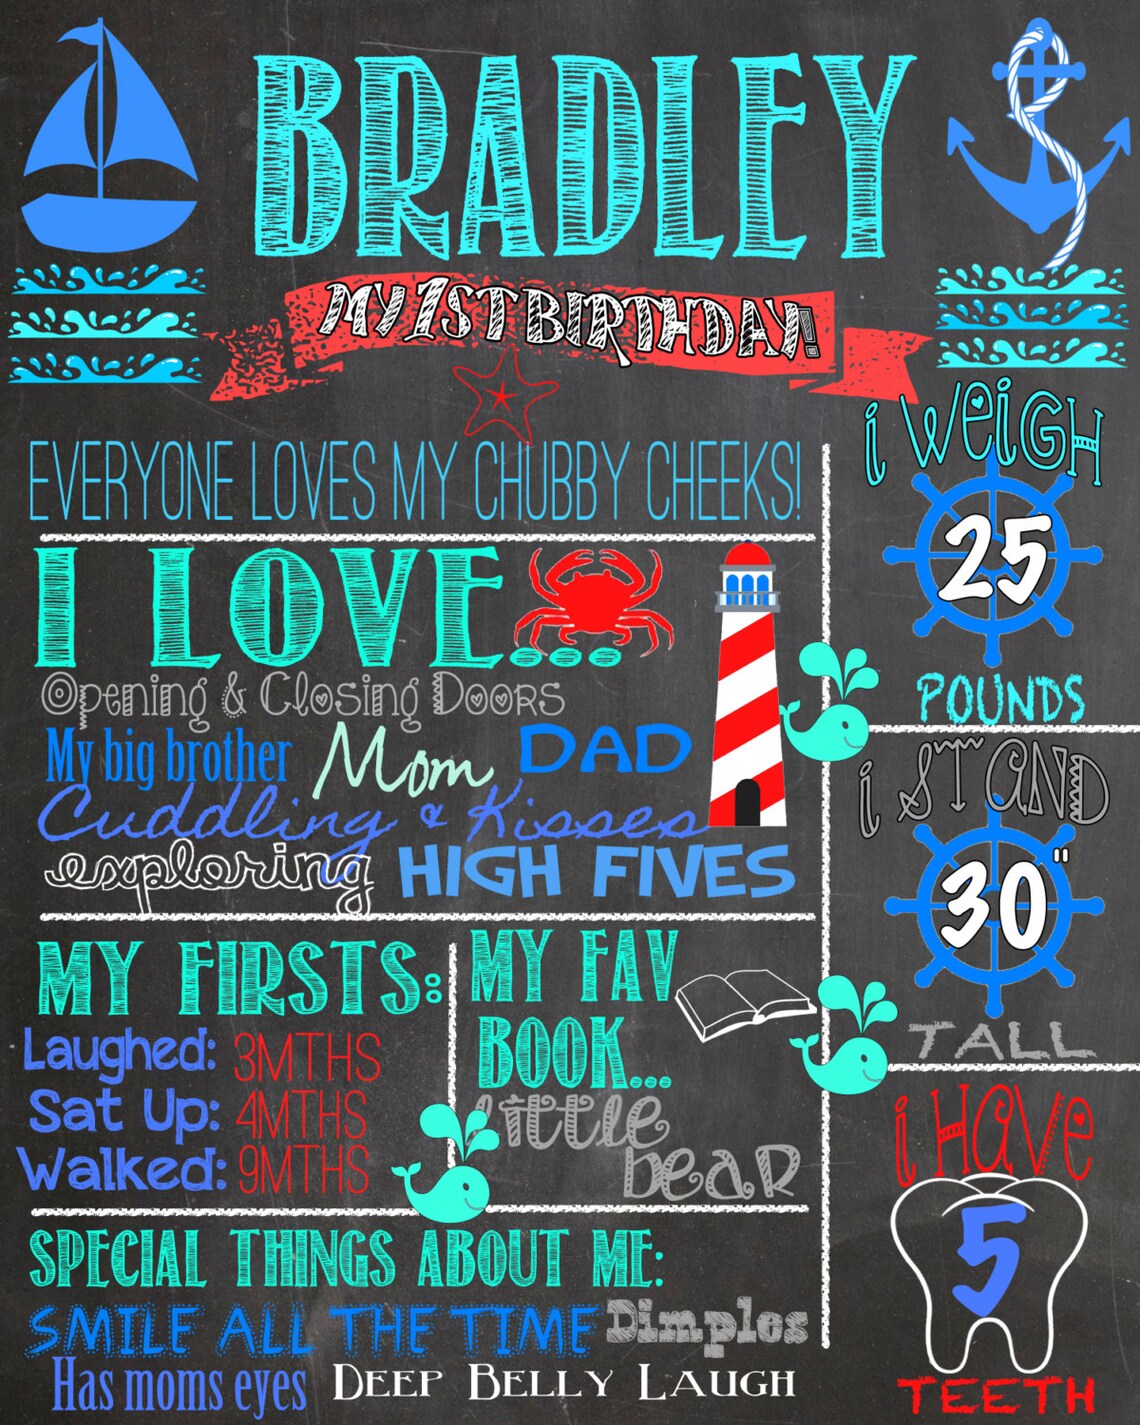 BRADLEY
MY 1ST BIRTHDAY!
EVERYONE LOVES MY CHUBBY CHEEKS!
I LOVE...
Opening & Closing Doors
My big brother Mom DAD
Cuddling & Kisses
exploring HIGH FIVES
MY FIRSTS:
Laughed: 3MTHS
Sat Up: 4MTHS
Walked: 9MTHS
MY FAV
BOOK...
little
bear
SPECIAL THINGS ABOUT ME:
SMILE ALL THE TIME Dimples
Has moms eyes DEEP BELLY LAUGH
i WEiGH
25
POUNDS
i STAND
30"
TALL
i HAVE
5
TEETH